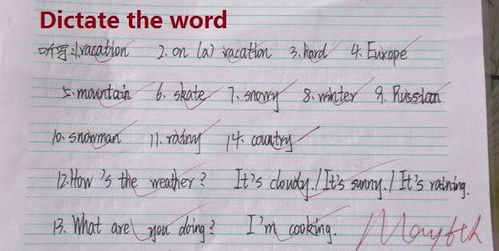 Dictate the word
听写 1. vacation 2. on (a) vacation 3. hard 4. Europe
5. mountain 6. skate 7. snowy 8. winter 9. Russian
10. snowman 11. rainy 14. country
12. How's the weather? It's cloudy. / It's sunny. / It's raining.
13. What are you doing? I'm cooking.